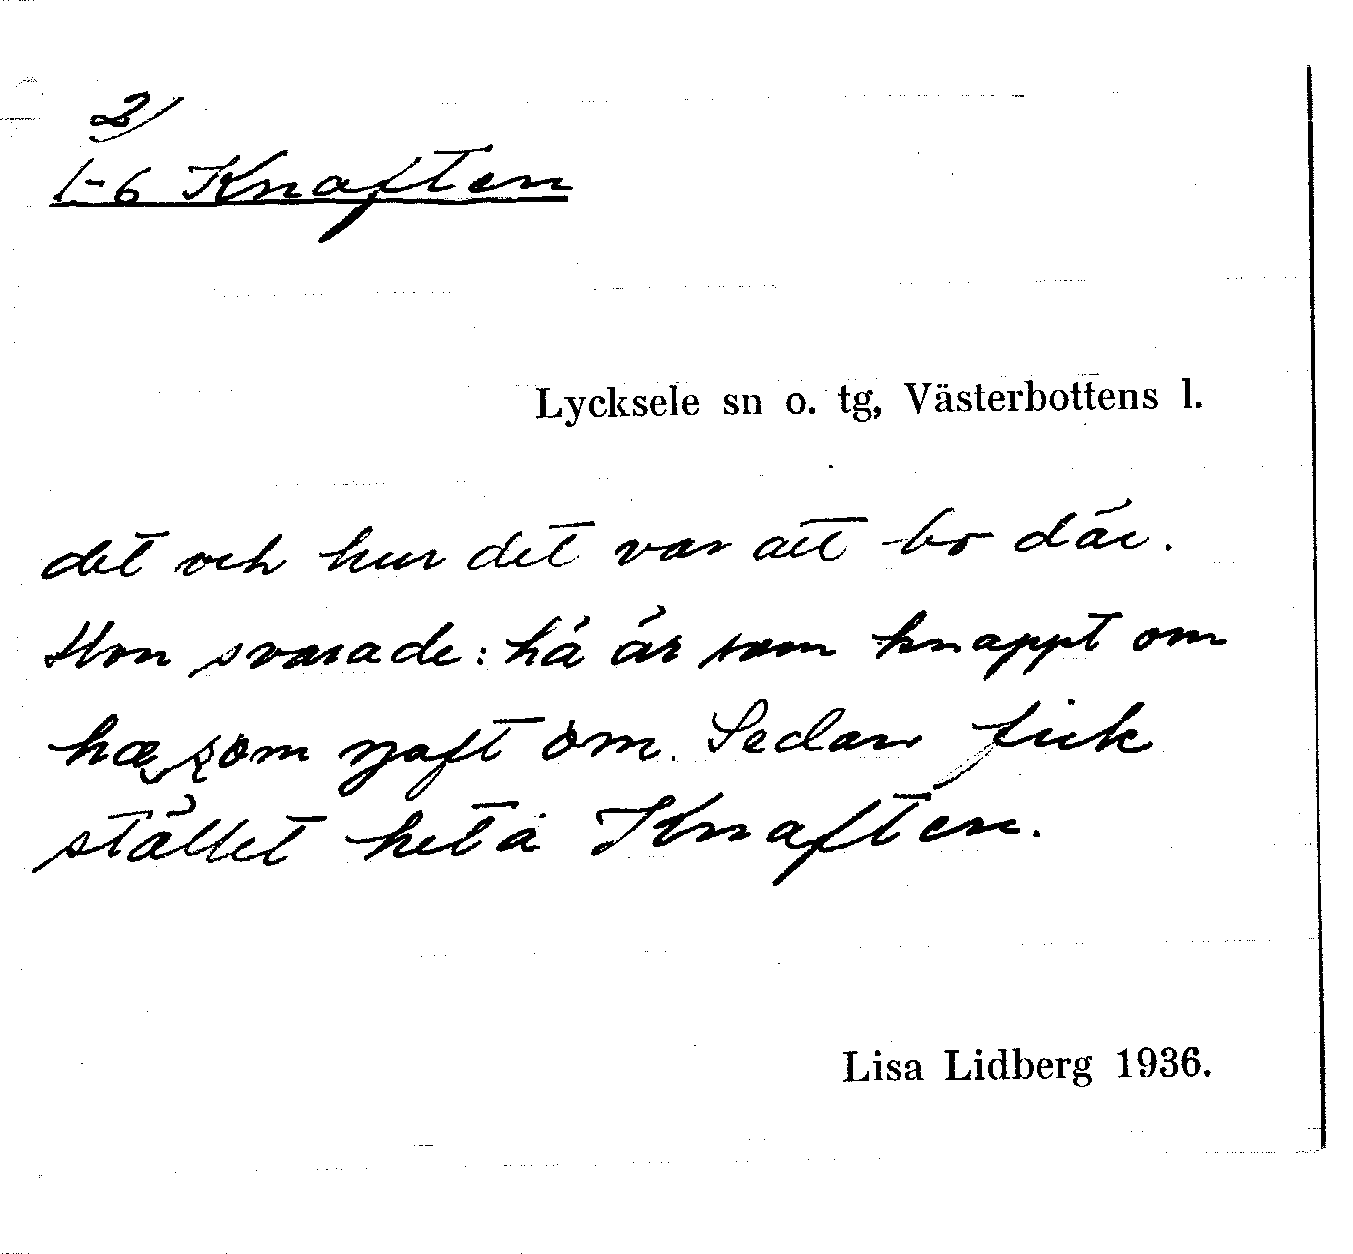 2/
1-6 Knaften
Lycksele sn o. tg, Västerbottens l.
det och hur det var att bo där.
Hon svarade: hä är som knappt om
som om. Sedan fick
stället heta Knaften.
Lisa Lidberg 1936.